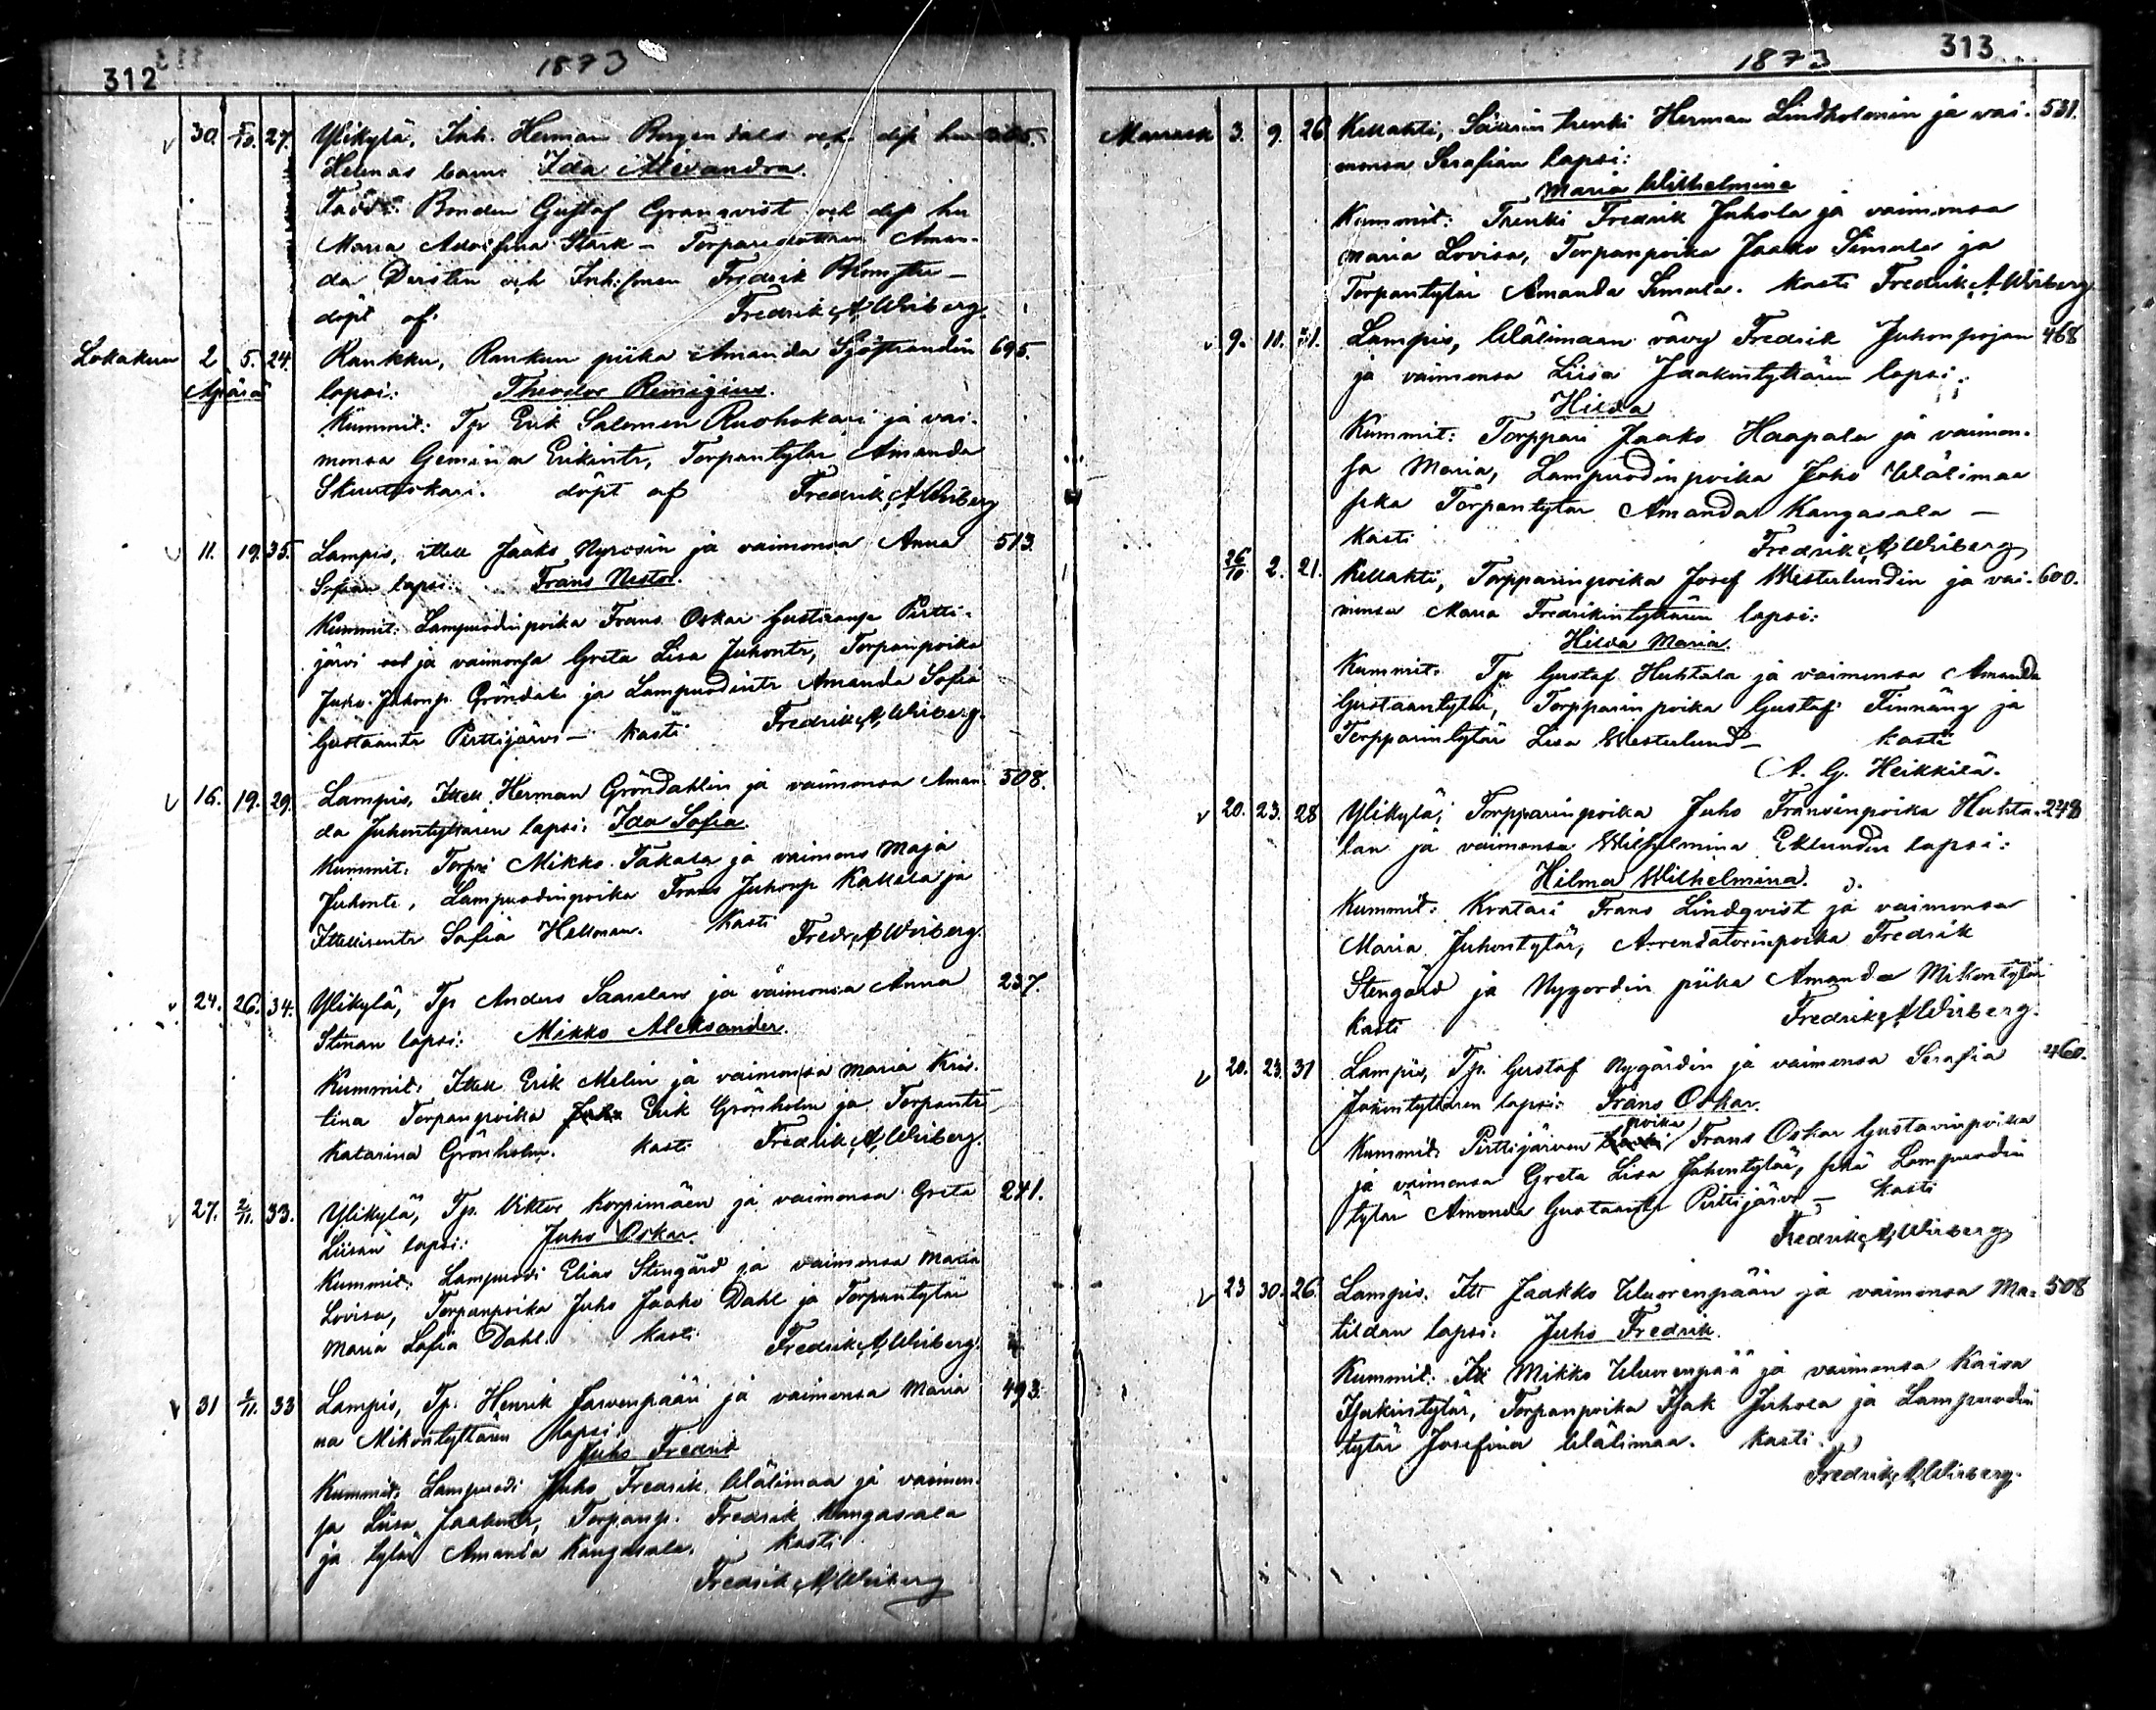 312
1873
30. 5/10. 27. Ylikylä, Inh. Herman Bergendals och dess hu
Helenas barn: Ida Alexandra.
Bonden Gustaf Granqvist och dess hu
Maria Adolfina Stark – Torparedottren Aman-
da och Inh: Fredrik Blomster –
döpt af. Fredrik A. Wirberg.
Lokakuu 2 5. 24. Rankku, Rankun piika Amanda Sjöstrandin 695.
Äpärä lapsi: Theodor Remigius.
Kummit: Tp Erik Salomon Ruohokari ja vai-
monsa Gemima Erikintr, Torpantytär Amanda
döpt af Fredrik A. Wirberg
11. 19. 35. Lampis, Jaako Nyrosin ja vaimonsa Anna 513.
Sofian lapsi: Frans Nestor.
Kummit: Lampuodinpoika Frans Oskar Pertti-
järvi ja vaimonsa Greta Lisa Juhontr, Torpanpoika
Juho Juhonp. Gröndahl ja Lampuodintr Amanda Sofia
Gustaantr Perttijärvi – Kasti Fredrik A. Wirberg.
16. 19. 29. Lampis, Itell. Herman Gröndahlin ja vaimonsa Aman- 508.
da Juhontyttären lapsi: Ida Sofia.
Kummit: Torpi Mikko Takala ja vaimons Maja
Juhontr, Lampuodinpoika Frans Juhonp Kallela ja
Itellisentr Sofia Hellman. Kasti Fredr. A. Wirberg.
24. 26. 34. Ylikylä, Tp Anders Saarelan ja vaimonsa Anna 237.
Stinan lapsi: Mikko Aleksander.
Kummit: Itell Erik Melin ja vaimonsa Maria Kris-
tina Torpanpoika Erik Grönholm ja Torpantr
Katarina Grönholm. Kasti Fredrik A. Wirberg.
27. 2/11. 33. Ylikylä, Tp. Viktor Korpimäen ja vaimonsa Greta 241.
Liisan lapsi: Juho Oskar.
Kummit: Lampuodi Elias Stengård ja vaimonsa Maria
Lovisa, Torpanpoika Juho Jaako Dahl ja Torpantytär
Maria Sofia Dahl. Kasti Fredrik A. Wirberg.
31 2/11. 33 Lampis, Tp. Henrik Järvenpään ja vaimonsa Maria 493.
na Mikontyttären lapsi
Juho Fredrik
Kummit: Lampuodi Juho Fredrik Wälimaa ja vaimon-
sa Liisa Jaakontr, Torpanp. Fredrik Kangasala
ja tytär Amanda Kangasala. Kasti
Fredrik A. Wirberg
1873
313
Marrask 3. 9. 26 Kellahti, Säurin trenki Herman Lindholmin ja vai- 531.
monsa Serafian lapsi:
Maria Wilhelmina
Kummit: Trenki Fredrik Juhola ja vaimonsa
Maria Lovisa, Torpanpoika Jaako Simula ja
Torpantytär Amanda Simula. Kasti Fredrik A. Wirberg
9. 11. 31. Lampis, Wälimaan vävy Fredrik Juhonpojan 468
ja vaimonsa Liisa Jaakontyttären lapsi:
Hilda
Kummit: Torppari Jaako Haapala ja vaimon-
sa Maria, Lampuodinpoika Juho Wälimaa
sekä Torpantytär Amanda Kangasala –
Kasti Fredrik A. Wirberg
26/10 2. 21. Kellahti, Torpparinpoika Josef Westerlundin ja vai- 600.
monsa Maria Fredrikintyttären lapsi:
Hilda Maria.
Kummit: Tp Gustaf Huhtala ja vaimonsa Amanda
Gustaantytär, Torpparinpoika Gustaf Finnäng ja
Torpparintytär Lisa Westerlund – Kasti
A. G. Heikkilä.
20. 23. 28 Ylikylä, Torpparinpoika Juho Fransinpoika Huhta- 248
lan ja vaimonsa Wilhelmina Eklundin lapsi:
Hilma Wilhelmina.
Kummit: Kratari Frans Lindqvist ja vaimonsa
Maria Juhontytär, Arrendatorinpoika Fredrik
Stengård ja Nygordin piika Amanda Mikontytär
Kasti Fredrik A. Wirberg.
20. 23. 31 Lampis, Tp. Gustaf Nygårdin ja vaimonsa Serafia 460.
Juhontyttären lapsi: Frans Oskar.
poika
Kummit: Perttijärven Frans Oskar Gustavinpoika
ja vaimonsa Greta Lisa Juhontytär, sekä Lampuodin
tytär Amanda Gustaantr Perttijärvi – Kasti
Fredrik A. Wirberg
23 30. 26. Lampis. Itt Jaakko Wuorenpään ja vaimonsa Ma- 508
tildan lapsi: Juho Fredrik.
Kummit: Itt Mikko Wuorenpää ja vaimonsa Kaisa
Isakintytär, Torpanpoika Isak Juhola ja Lampuodin
tytär Josefina Wälimaa. Kasti
Fredrik A. Wirberg.